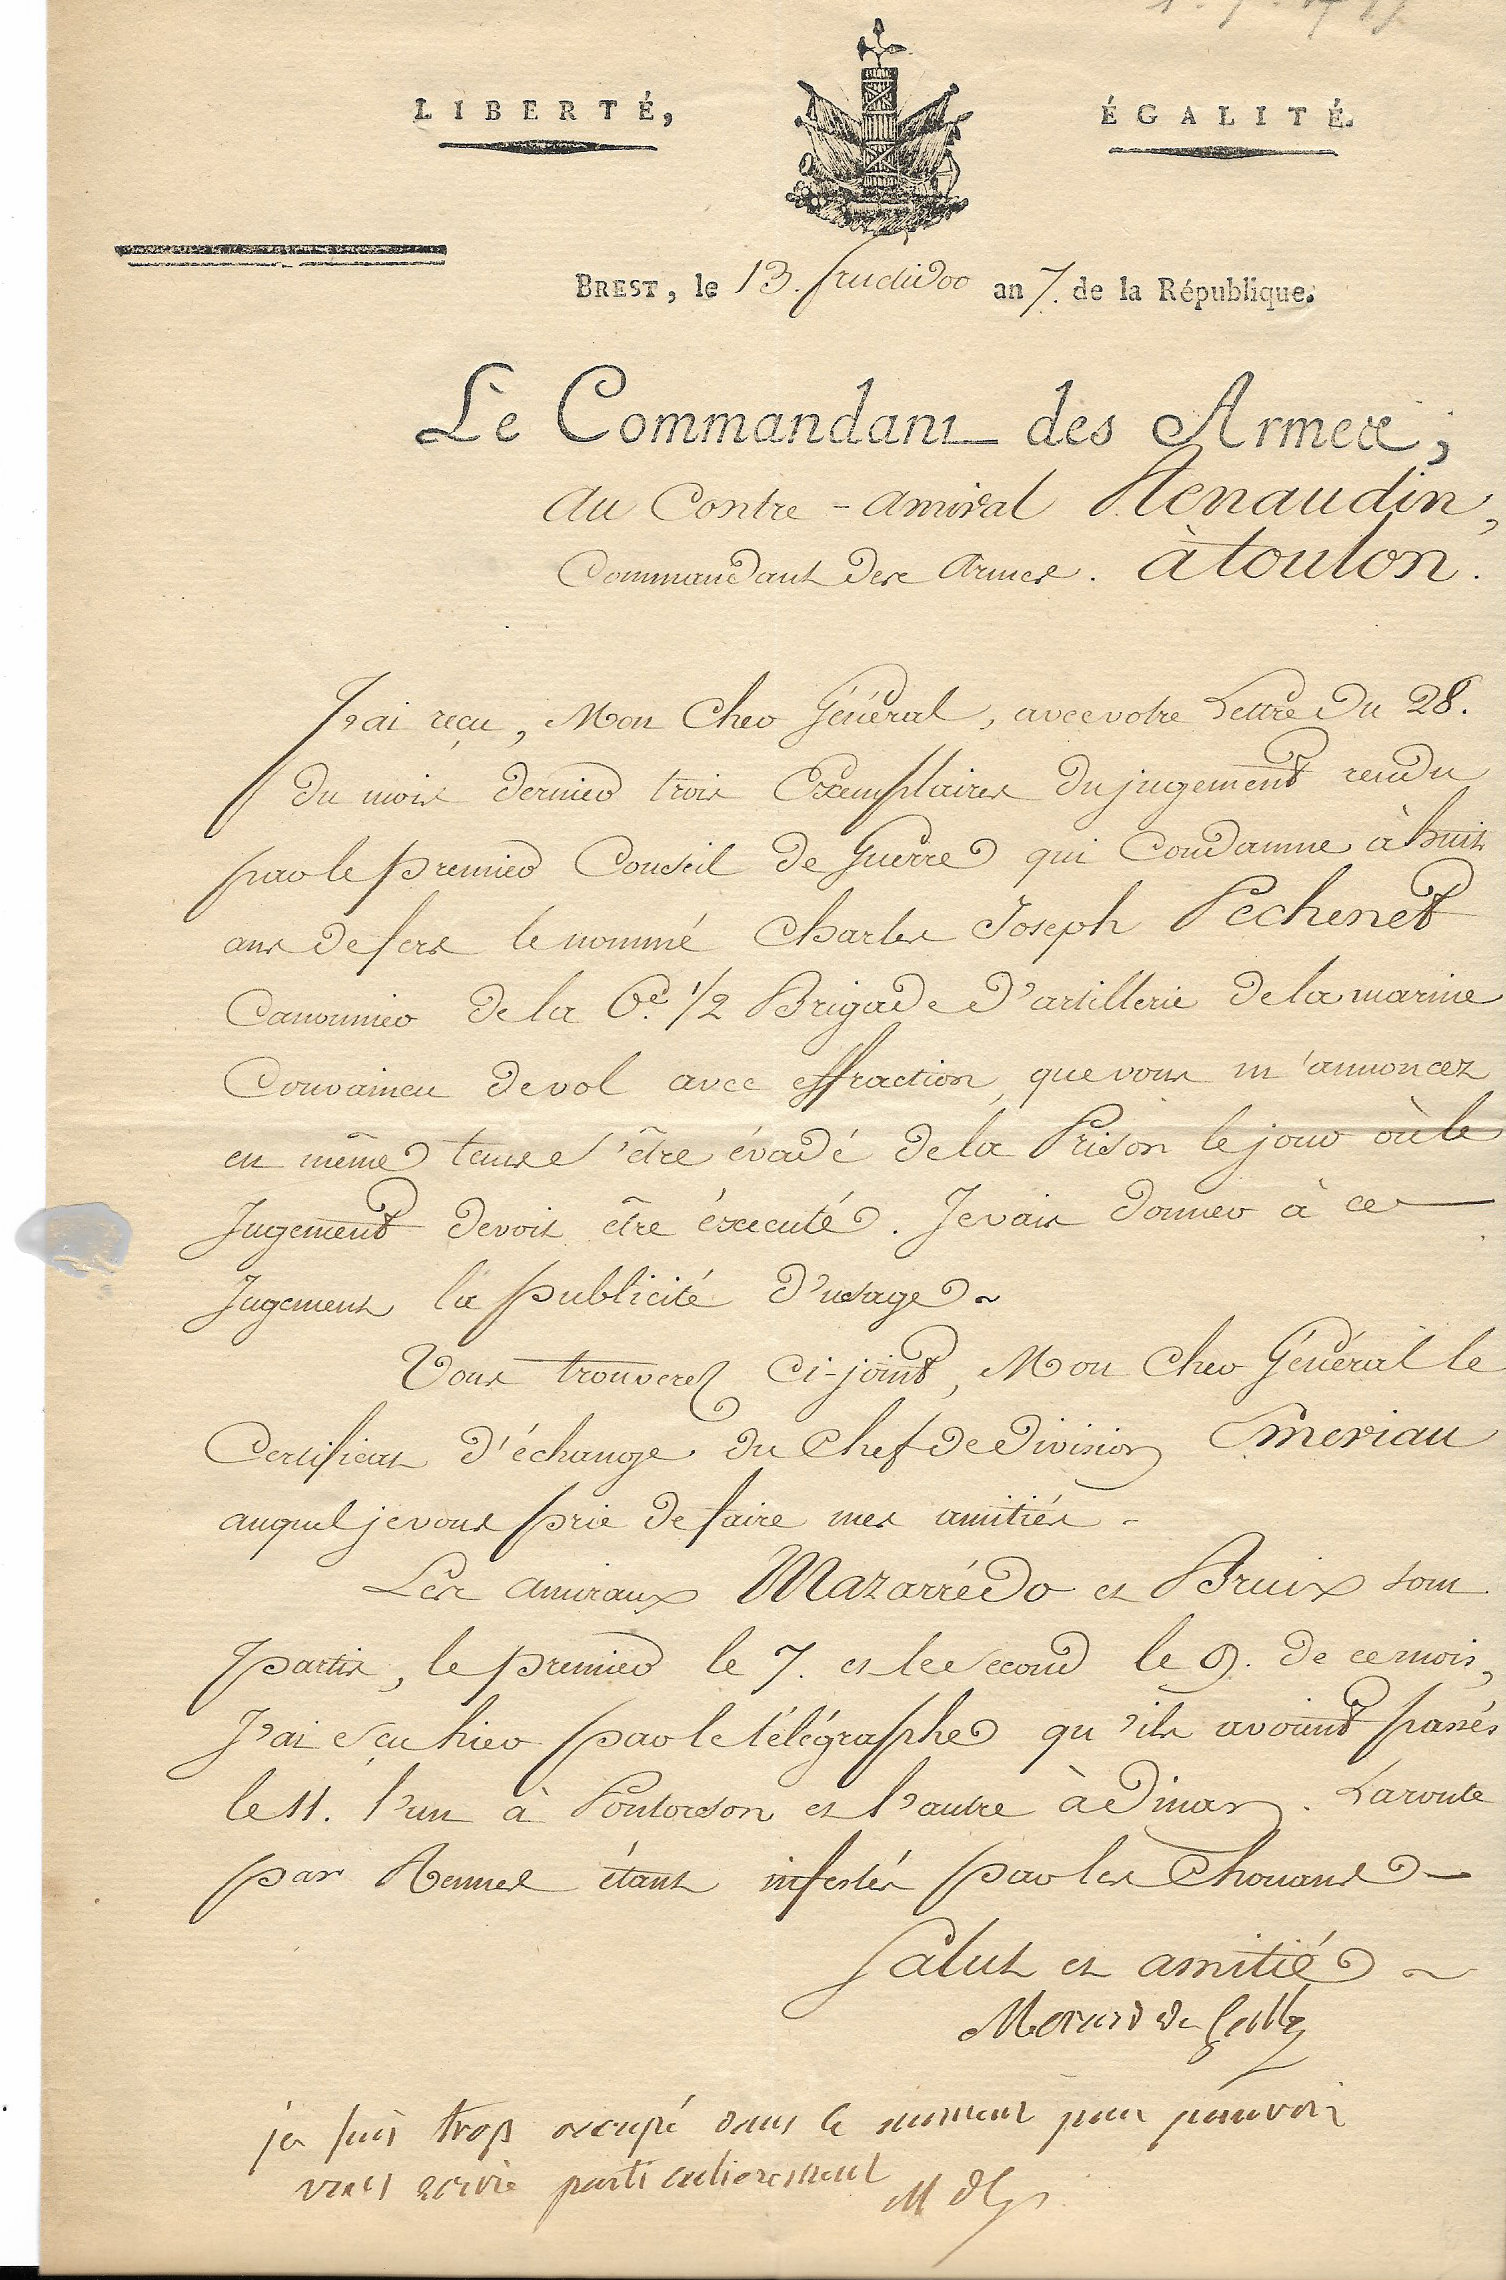 LIBERTÉ, ÉGALITÉ.
BREST, le 13. fructidor an 7. de la République.
Le Commandant des Armes,
Au Contre-amiral Renaudin,
Commandant des Armes. à toulon.
J'ai reçu, Mon Cher Général, avec votre Lettre du 28.
du mois dernier trois Exemplaires du jugement rendu
par le premier Conseil de Guerre qui Condamne à huit
ans de fers le nommé Charles Joseph Pechenet
Canonnier de la 6e. 1/2 Brigade d'artillerie de la marine
Convaincu de vol avec effraction, que vous m'annoncez
en même tems s'être évadé de la Prison le jour où le
Jugement devoit être éxecuté. Je vais donner à ce
Jugement la publicité d'usage.
Vous trouverez ci-joint, Mon Cher Général le
Certificat d'échange du Chef de Division Emeriau
auquel je vous prie de faire mes amitiés.
Les amiraux Mazarrédo et Bruix sont
partis, le premier le 7. et le second le 9. de ce mois,
J'ai sçu hier par le télégraphe qu'ils avoient passés
le 11. l'un à Pontorson et l'autre à Dinan. La route
par Rennes étant infestés par les Chouans
Salut et amitié
Morard de Galles
je suis trop occupé dans ce moment pour pouvoir
vous ecrire particulierement M d G